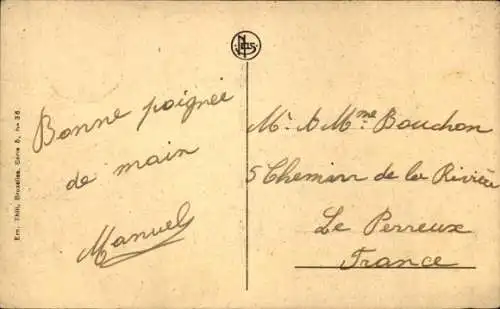 Ern. Thill, Bruxelles, Série 5, No 36
NELS
Bonne poignée
de main
Manuel
Mr & Mme Bouchon
5 Chemin de la Rivière
Le Perreux
France